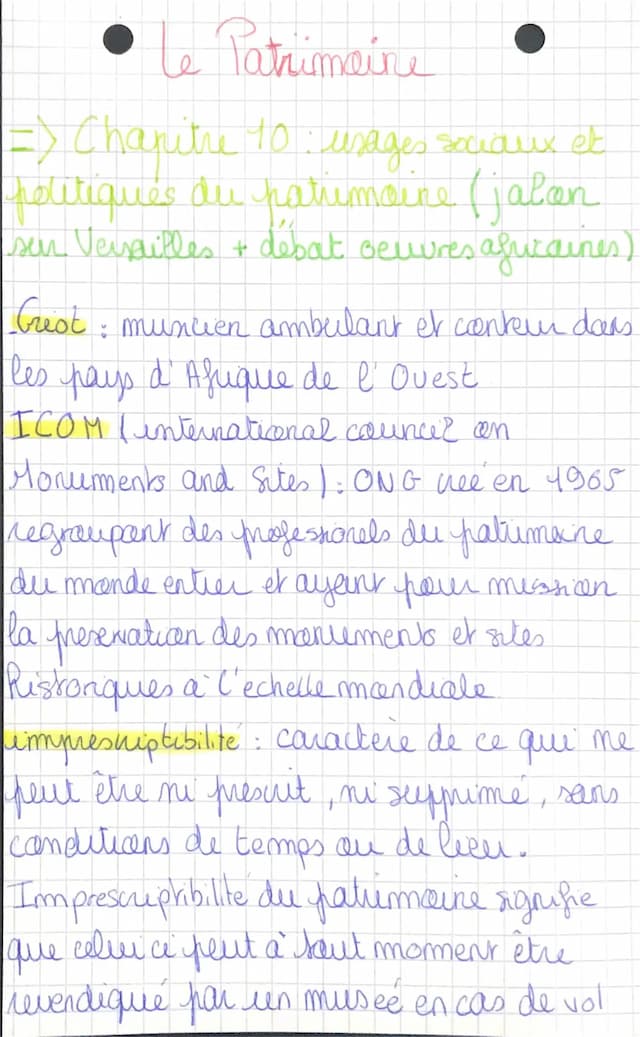 Le Patrimoine
=> Chapitre 10 : usages sociaux et
politiques du patrimoine (jalon
sur Versailles + débat oeuvres africaines)
Griot : musicien ambulant et conteur dans
les pays d'Afrique de l'Ouest
ICOM (international council on
Monuments and Sites) : ONG créé en 1965
regroupant des professionels du patrimoine
du monde entier et ayant pour mission
la preservation des monuments et sites
historiques à l'echelle mondiale
imprescriptibilité : caractère de ce qui ne
peut être ni prescrit, ni supprimé, sans
conditions de temps ou de lieu.
Imprescriptibilité du patrimoine signifie
que celui ci peut à tout moment être
revendiqué par un museé en cas de vol